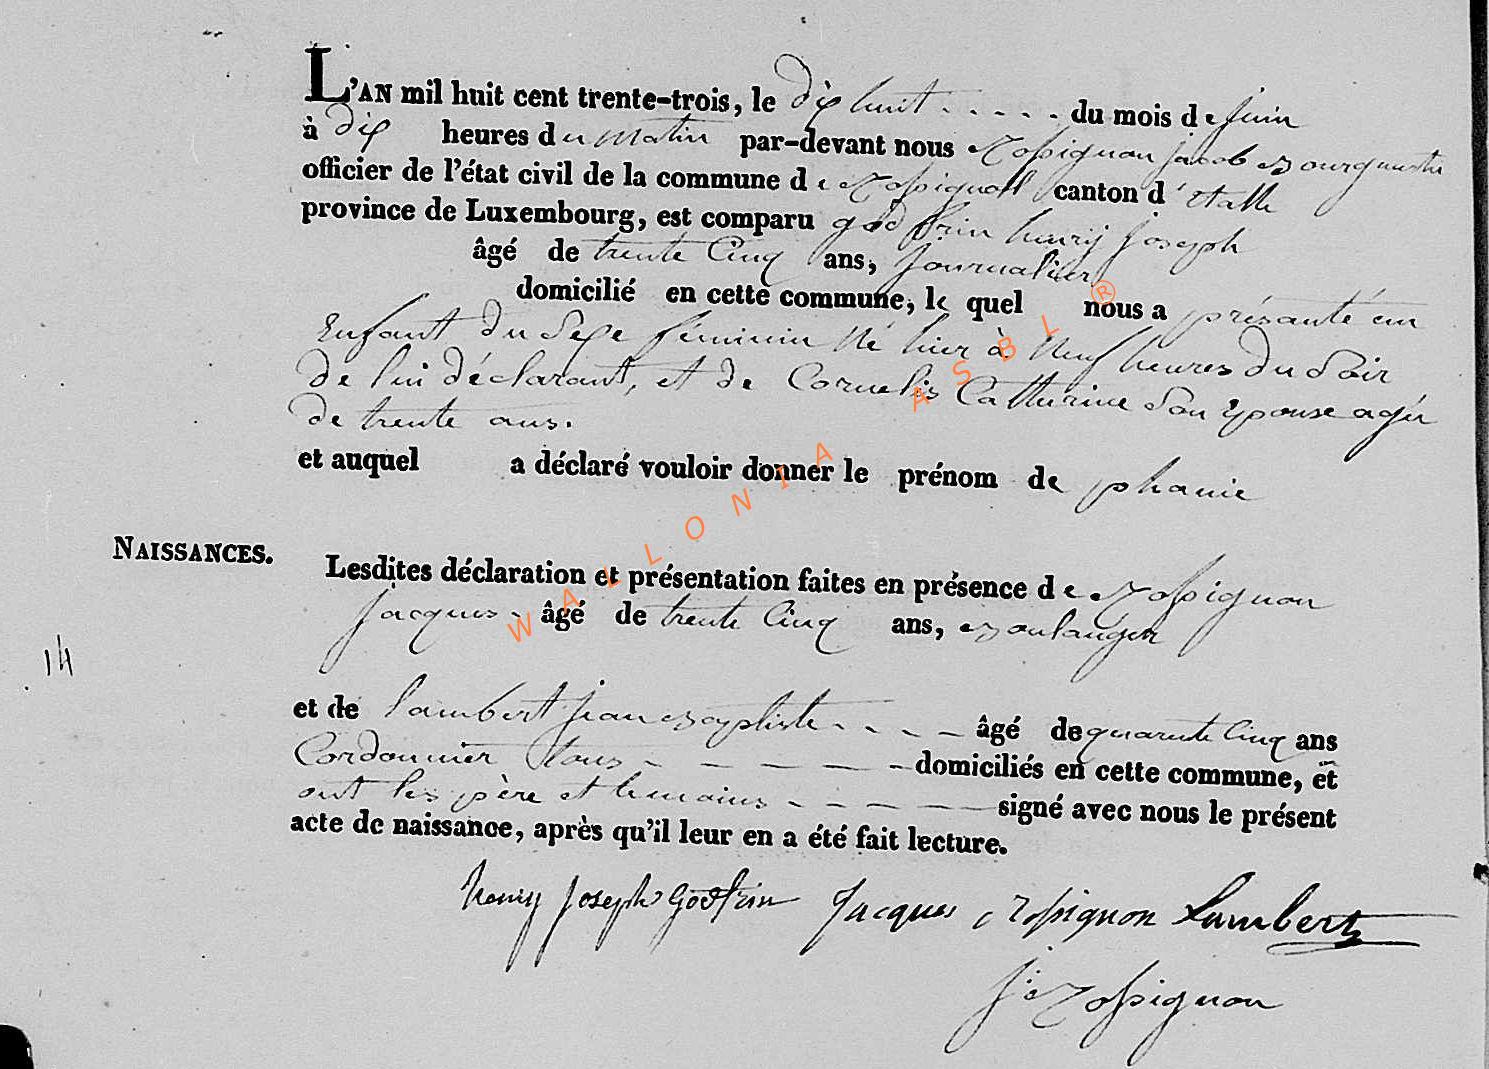 L'AN mil huit cent trente-trois, le dix huit - - - - - du mois de juin
à dix heures du matin par-devant nous Rossignon jacob Bourgmestre
officier de l'état civil de la commune de Rossignoll canton d'etalle
province de Luxembourg, est comparu godfrin henrij joseph
âgé de trente Cinq ans, journalier
domicilié en cette commune, lequel nous a présanté ein
Enfant du Sexe féminin Né hier à Neuf heures Du Soir
De lui déclarant, et de Cornelis Catturine Son Epouse agée
de trente ans.
et auquel a déclaré vouloir donner le prénom de phanie
NAISSANCES.
Lesdites déclaration et présentation faites en présence de Rossignon
jacques - âgé de trente Cinq ans, Boulanger
14
et de lambert jean Baptiste - - - - âgé de quarente Cinq ans
Cordonnier tous - - - - - domiciliés en cette commune, et
ont les père et temoins - - - - signé avec nous le présent
acte de naissance, après qu'il leur en a été fait lecture.
henry joseph Godfrin Jacques Rossignon Lambert
Jc Rossignon
WALLONIA ASBL ®